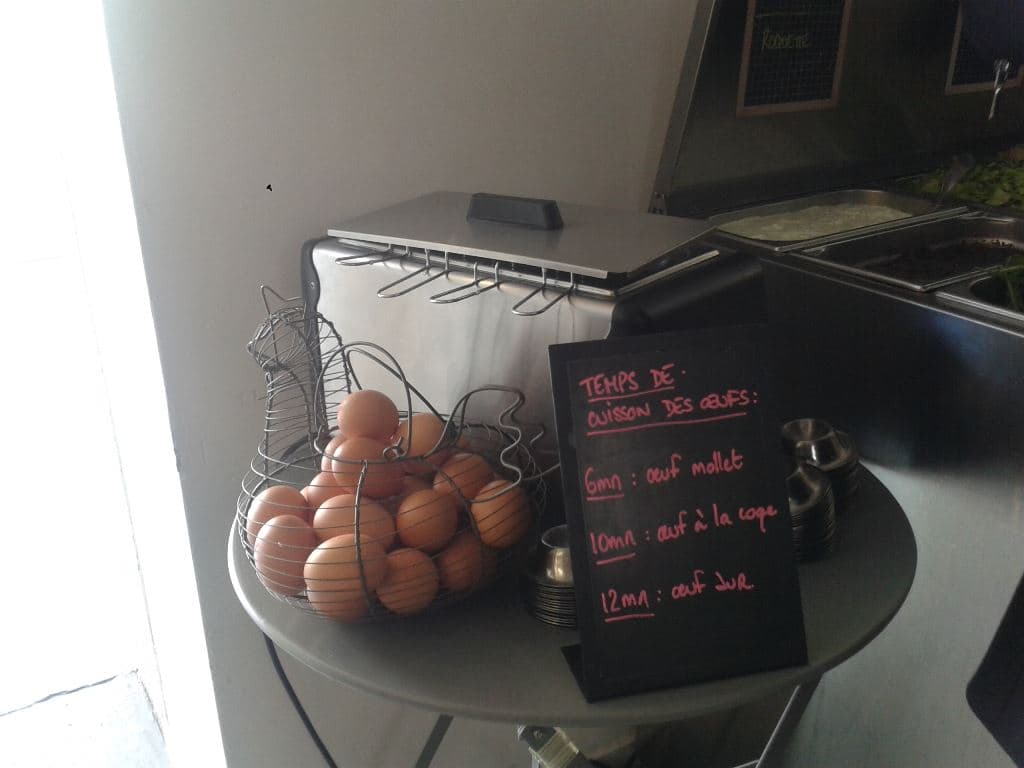 Roquette
TEMPS DE
CUISSON DES ŒUFS:
6mn : œuf mollet
10mn : œuf à la coque
12mn : œuf dur.